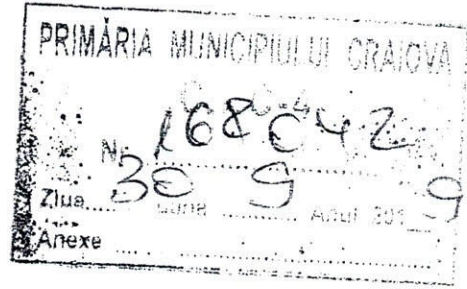 PRIMĂRIA MUNICIPIULUI CRAIOVA
Nr. 168042
Ziua 30 Luna 9 Anul 201 9
Anexe